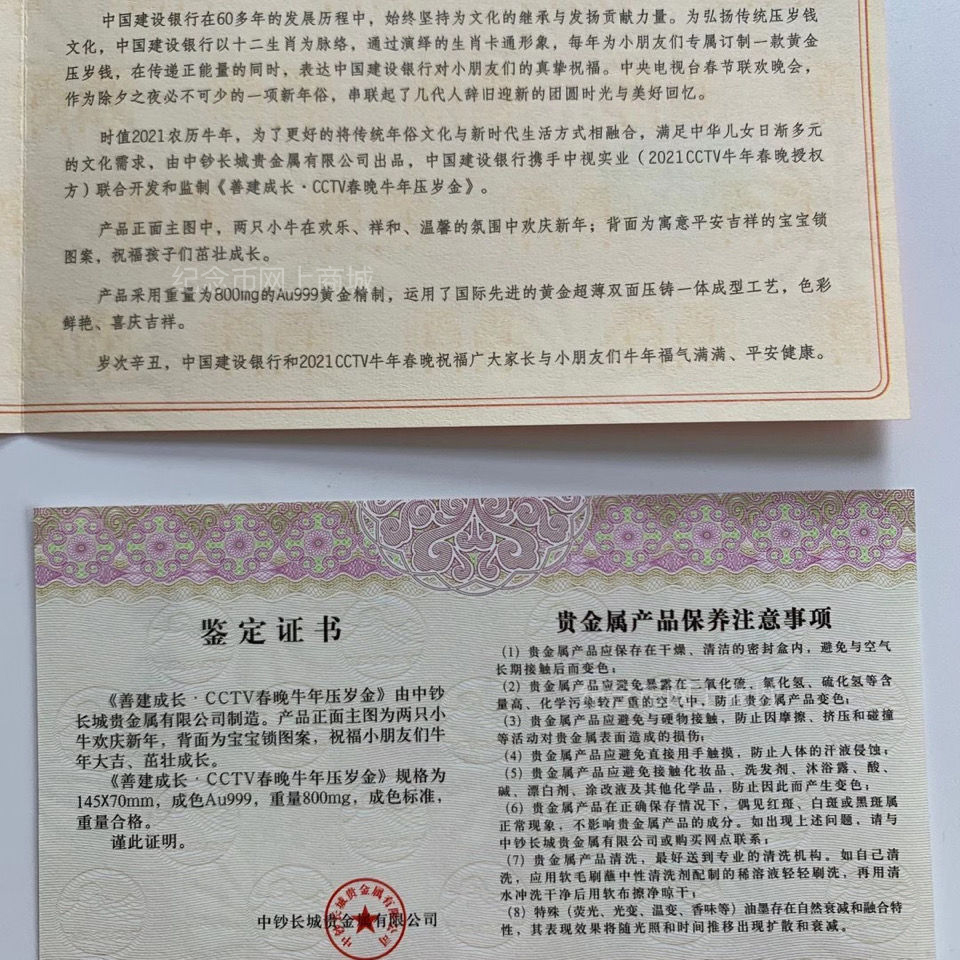 中国建设银行在60多年的发展历程中，始终坚持为文化的继承与发扬贡献力量。为弘扬传统压岁钱
文化，中国建设银行以十二生肖为脉络，通过演绎的生肖卡通形象，每年为小朋友们专属订制一款黄金
压岁钱，在传递正能量的同时，表达中国建设银行对小朋友们的真挚祝福。中央电视台春节联欢晚会，
作为除夕之夜必不可少的一项新年俗，串联起了几代人辞旧迎新的团圆时光与美好回忆。
时值2021农历牛年，为了更好的将传统年俗文化与新时代生活方式相融合，满足中华儿女日渐多元
的文化需求，由中钞长城贵金属有限公司出品，中国建设银行携手中视实业（2021CCTV牛年春晚授权
方）联合开发和监制《善建成长·CCTV春晚牛年压岁金》。
产品正面主图中，两只小牛在欢乐、祥和、温馨的氛围中欢庆新年；背面为寓意平安吉祥的宝宝锁
图案，祝福孩子们茁壮成长。
纪念币网上商城
产品采用重量为800mg的Au999黄金精制，运用了国际先进的黄金超薄双面压铸一体成型工艺，色彩
鲜艳、喜庆吉祥。
岁次辛丑，中国建设银行和2021CCTV牛年春晚祝福广大家长与小朋友们牛年福气满满、平安健康。
鉴定证书
《善建成长·CCTV春晚牛年压岁金》由中钞
长城贵金属有限公司制造。产品正面主图为两只小
牛欢庆新年，背面为宝宝锁图案，祝福小朋友们牛
年大吉、茁壮成长。
《善建成长·CCTV春晚牛年压岁金》规格为
145X70mm，成色Au999，重量800mg，成色标准，
重量合格。
谨此证明。
中钞长城贵金属有限公司
中钞长城贵金属有限公司
贵金属产品保养注意事项
（1）贵金属产品应保存在干燥、清洁的密封盒内，避免与空气
长期接触后而变色；
（2）贵金属产品应避免暴露在二氧化硫，氯化氢、硫化氢等含
量高、化学污染较严重的空气中，防止贵金属产品变色；
（3）贵金属产品应避免与硬物接触，防止因摩擦、挤压和碰撞
等活动对贵金属表面造成的损伤；
（4）贵金属产品应避免直接用手触摸，防止人体的汗液侵蚀；
（5）贵金属产品应避免接触化妆品、洗发剂、沐浴露、酸、
碱、漂白剂、涂改液及其他化学品，防止因此而产生变色；
（6）贵金属产品在正确保存情况下，偶见红斑、白斑或黑斑属
正常现象，不影响贵金属产品的成分。如出现上述问题，请与
中钞长城贵金属有限公司或购买网点联系；
（7）贵金属产品清洗，最好送到专业的清洗机构。如自己清
洗，应用软毛刷蘸中性清洗剂配制的稀溶液轻轻刷洗，再用清
水冲洗干净后用软布擦净晾干；
（8）特殊（荧光、光变、温变、香味等）油墨存在自然衰减和融合特
性，其表现效果将随光照和时间推移出现扩散和衰减。